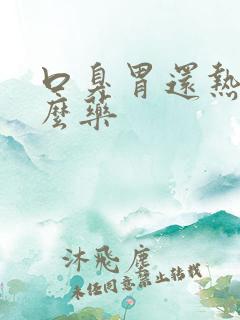 口臭胃還熱
麼藥
沐飛塵
未經同意禁止轉載